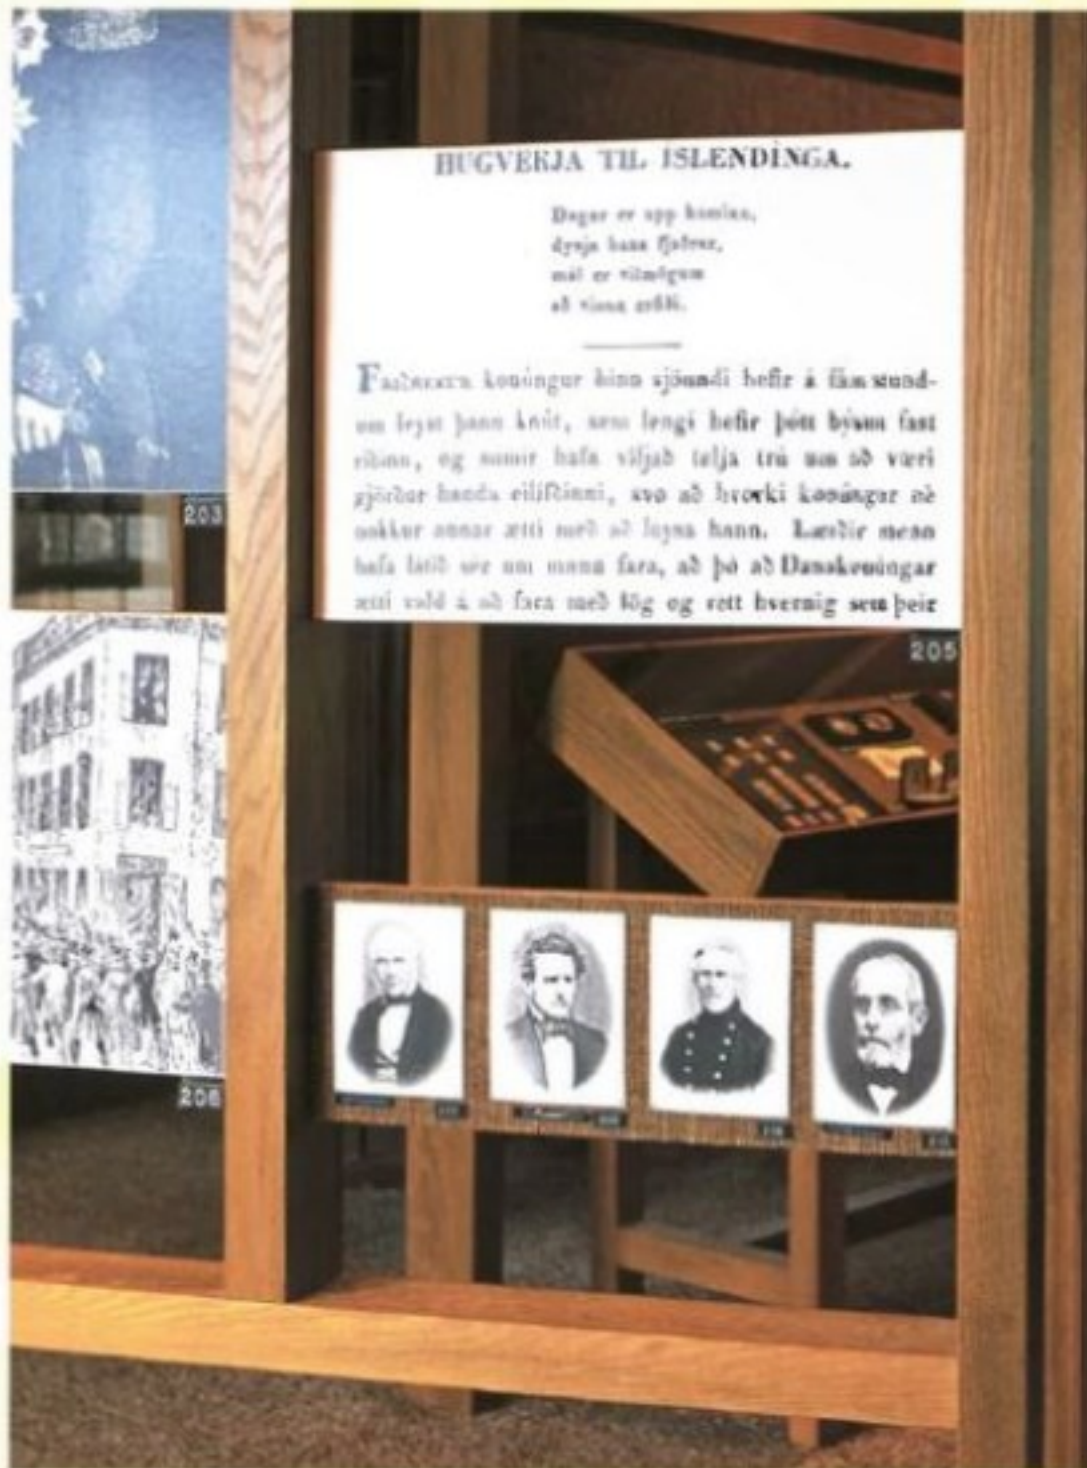 203
206
HUGVEKJA TIL ÍSLENDÍNGA.
Dagur er upp kominn,
dynja hana fjaðrar,
mál er vilmögum
að vinna erfiði.
konúngur hinn sjöundi hefir á fám stund-
um leyst þann knút, sem lengi hefir þótt býsna fast
riðinn, og sumir hafa viljað telja trú um að væri
gjörður handa eilífðinni, svo að hvorki konúngur nè
nokkur annar ætti með að leysa hann. Lærðir menn
hafa látið sér um munn fara, að þó að Danakonúngar
ætti vald á að fara með lög og rétt hvernig sem þeir
205